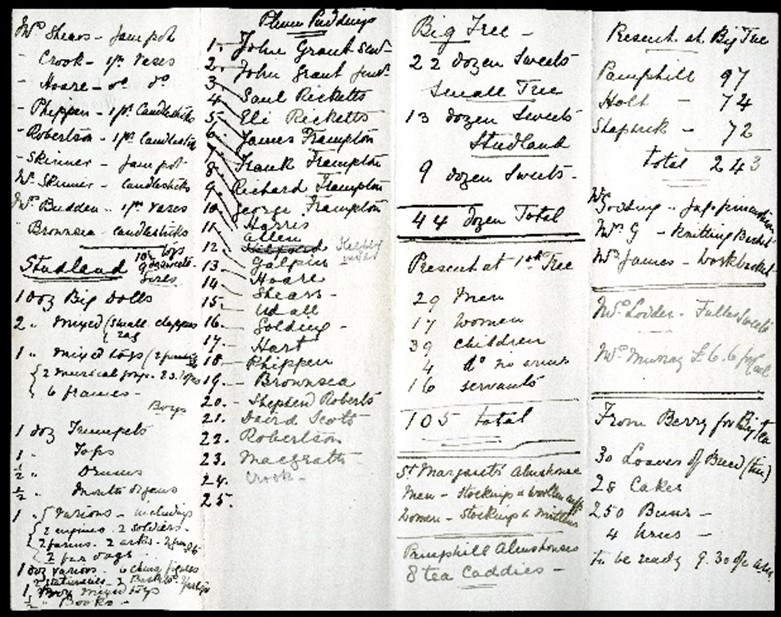 Mrs Shears - Jam pot
- Crook - 1 pr Vases
- Hoare - do do
- Phippen - 1 pr Candlesticks
- Robertson - 1 pr Candlesticks
- Skinner - Jam pot
W. Skinner - Candlesticks
Mrs Budden - 1 pr Vases
Brownsea - Candlesticks
Studland
Girls
1 doz Big Dolls
2 " mixed (small
1 " mixed toys
2 musical
6 frames -
Boys
1 doz Trumpets
1 " Tops
½ " Drums
½ " Mouth organs
1 " Various - including
2 engines. 2 soldiers -
2 farms.
2 fur dogs
1 doz various - 6 china figures
2 stationeries -
1 Box mixed toys
½ " Books -
Plum Puddings
1. - John Grant Senr
2. John Grant Junr
3. Saul Ricketts
4. Eli Ricketts
5. James Frampton
6. Frank Frampton
7. Richard Frampton
8. George Frampton
9. Harris
10. Allen
11.
12. Galpin
13. Hoare
14. Shears -
15. - Udall
16. - Golding -
17. - Hart
18. - Phippen
19. - Brownsea
20. - Stephen Roberts
21. David Scots
22. Robertson
23. Macgrath
24. Crook -
25.
Big Tree -
22 dozen Sweets
Small Tree
13 dozen Sweets
Studland
9 dozen Sweets -
44 dozen Total
Present at 1st Tree
29 Men
17 Women
39 Children
4 do no
16 servants
105 total
St Margarets Almshouse
Men - Stockings & woollen
Women - Stockings & mittens
Pamphill Almshouses
8 tea Caddies -
Present at Big Tree
Pamphill 97
Holt - 74
Shapwick - 72
total 243
Mrs Gooding -
Mrs G - Knitting Basket
Mrs James - Workbasket
Mrs Lodder - Fuller Sweets
Mrs Murray £6.6 for
From Berry for Big
30 Loaves of Bread (tin)
28 Cakes
250 Buns -
4 Urns -
to be ready 9.30 o'c